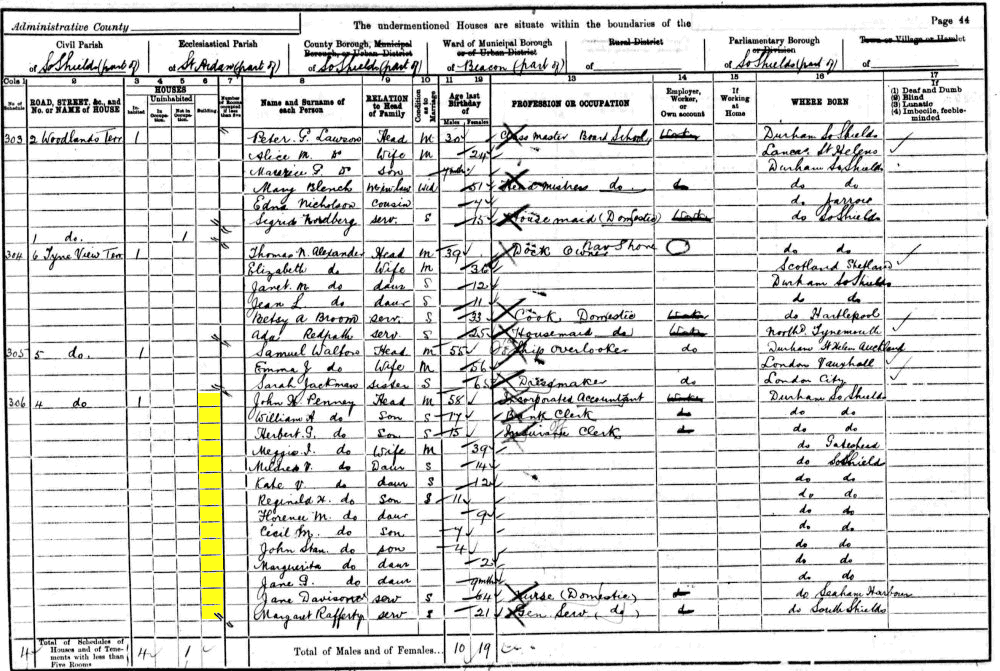 Administrative County The undermentioned Houses are situate within the boundaries of the Page 44
Civil Parish Ecclesiastical Parish County Borough, Municipal Borough, or Urban District Ward of Municipal Borough or of Urban District Rural District Parliamentary Borough or Division Town or Village or Hamlet
of So Shields (part of) of St Aidan (part of) of So Shields (part of) of Beacon (part of) of of So Shields (part of) of
Cols 1 2 3 4 5 6 7 8 9 10 11 12 13 14 15 16 17
No. of Schedule ROAD, STREET, &c., and No. or NAME of HOUSE HOUSES Inhabited Uninhabited In Occupation. Not in Occupation. Building Number of Rooms occupied if less than five Name and Surname of each Person RELATION to Head of Family Condition as to Marriage Age last Birthday of Males Females PROFESSION OR OCCUPATION Employer, Worker, or Own account If Working at Home WHERE BORN If (1) Deaf and Dumb (2) Blind (3) Lunatic (4) Imbecile, feeble-minded
303 2 Woodlands Terr 1 Peter G. Lawson Head M 30 Class Master Board School Durham So Shields
Alice M. Do Wife M 24 Lancas. St Helens
Do Son Durham So Shields
Mary Blench Wid 51 Head Mistress do. do do
Edna Nicholson Cousin 4 do Jarrow
Sigrid Nordberg serv. S 15 Housemaid (Domestic) Worker do So Shields
1 do. 1
304 6 Tyne View Terr 1 Thomas N. Alexander Head M 39 Dock Owner do do
Elizabeth do Wife M 36 Scotland Shetland
Janet M do daur S 12 Durham So Shields
Jean L. do daur S 11 do do
Betsy A Broom serv. S 33 Cook Domestic Worker do Hartlepool
Ada Redpath serv. S 25 Housemaid do Worker North'd Tynemouth
305 5 do. 1 Samuel Walton Head M 55 Ship Overlooker do Durham St Helen Auckland
Emma J do Wife M 56 London Vauxhall
Sarah Jackman Sister S 65 Dressmaker do London City
306 4 do 1 John W Penney Head M 58 Incorporated Accountant Durham So Shields
William H. do Son S 17 Bank Clerk do do
Herbert G. do Son S 15 Insurance Clerk do do
Meggie I. do Wife M 39 do Gateshead
Mildred V. do Daur S 14 do So Shield
Kate V. do daur S 12 do do
Reginald H. do Son S 11 do do
Florence M. do daur 9 do do
Cecil M. do Son 7 do do
John Stan. do son 4 do do
Marguerita do daur 2 do do
Jane G. do daur 9 mths do do
Jane Davison serv S 64 Nurse (Domestic) do Seaham Harbour
Margaret Rafferty serv S 21 Gen Serv (do) do South Shields
4 Total of Schedules of Houses and of Tenements with less than Five Rooms 4 1 Total of Males and of Females... 10 19